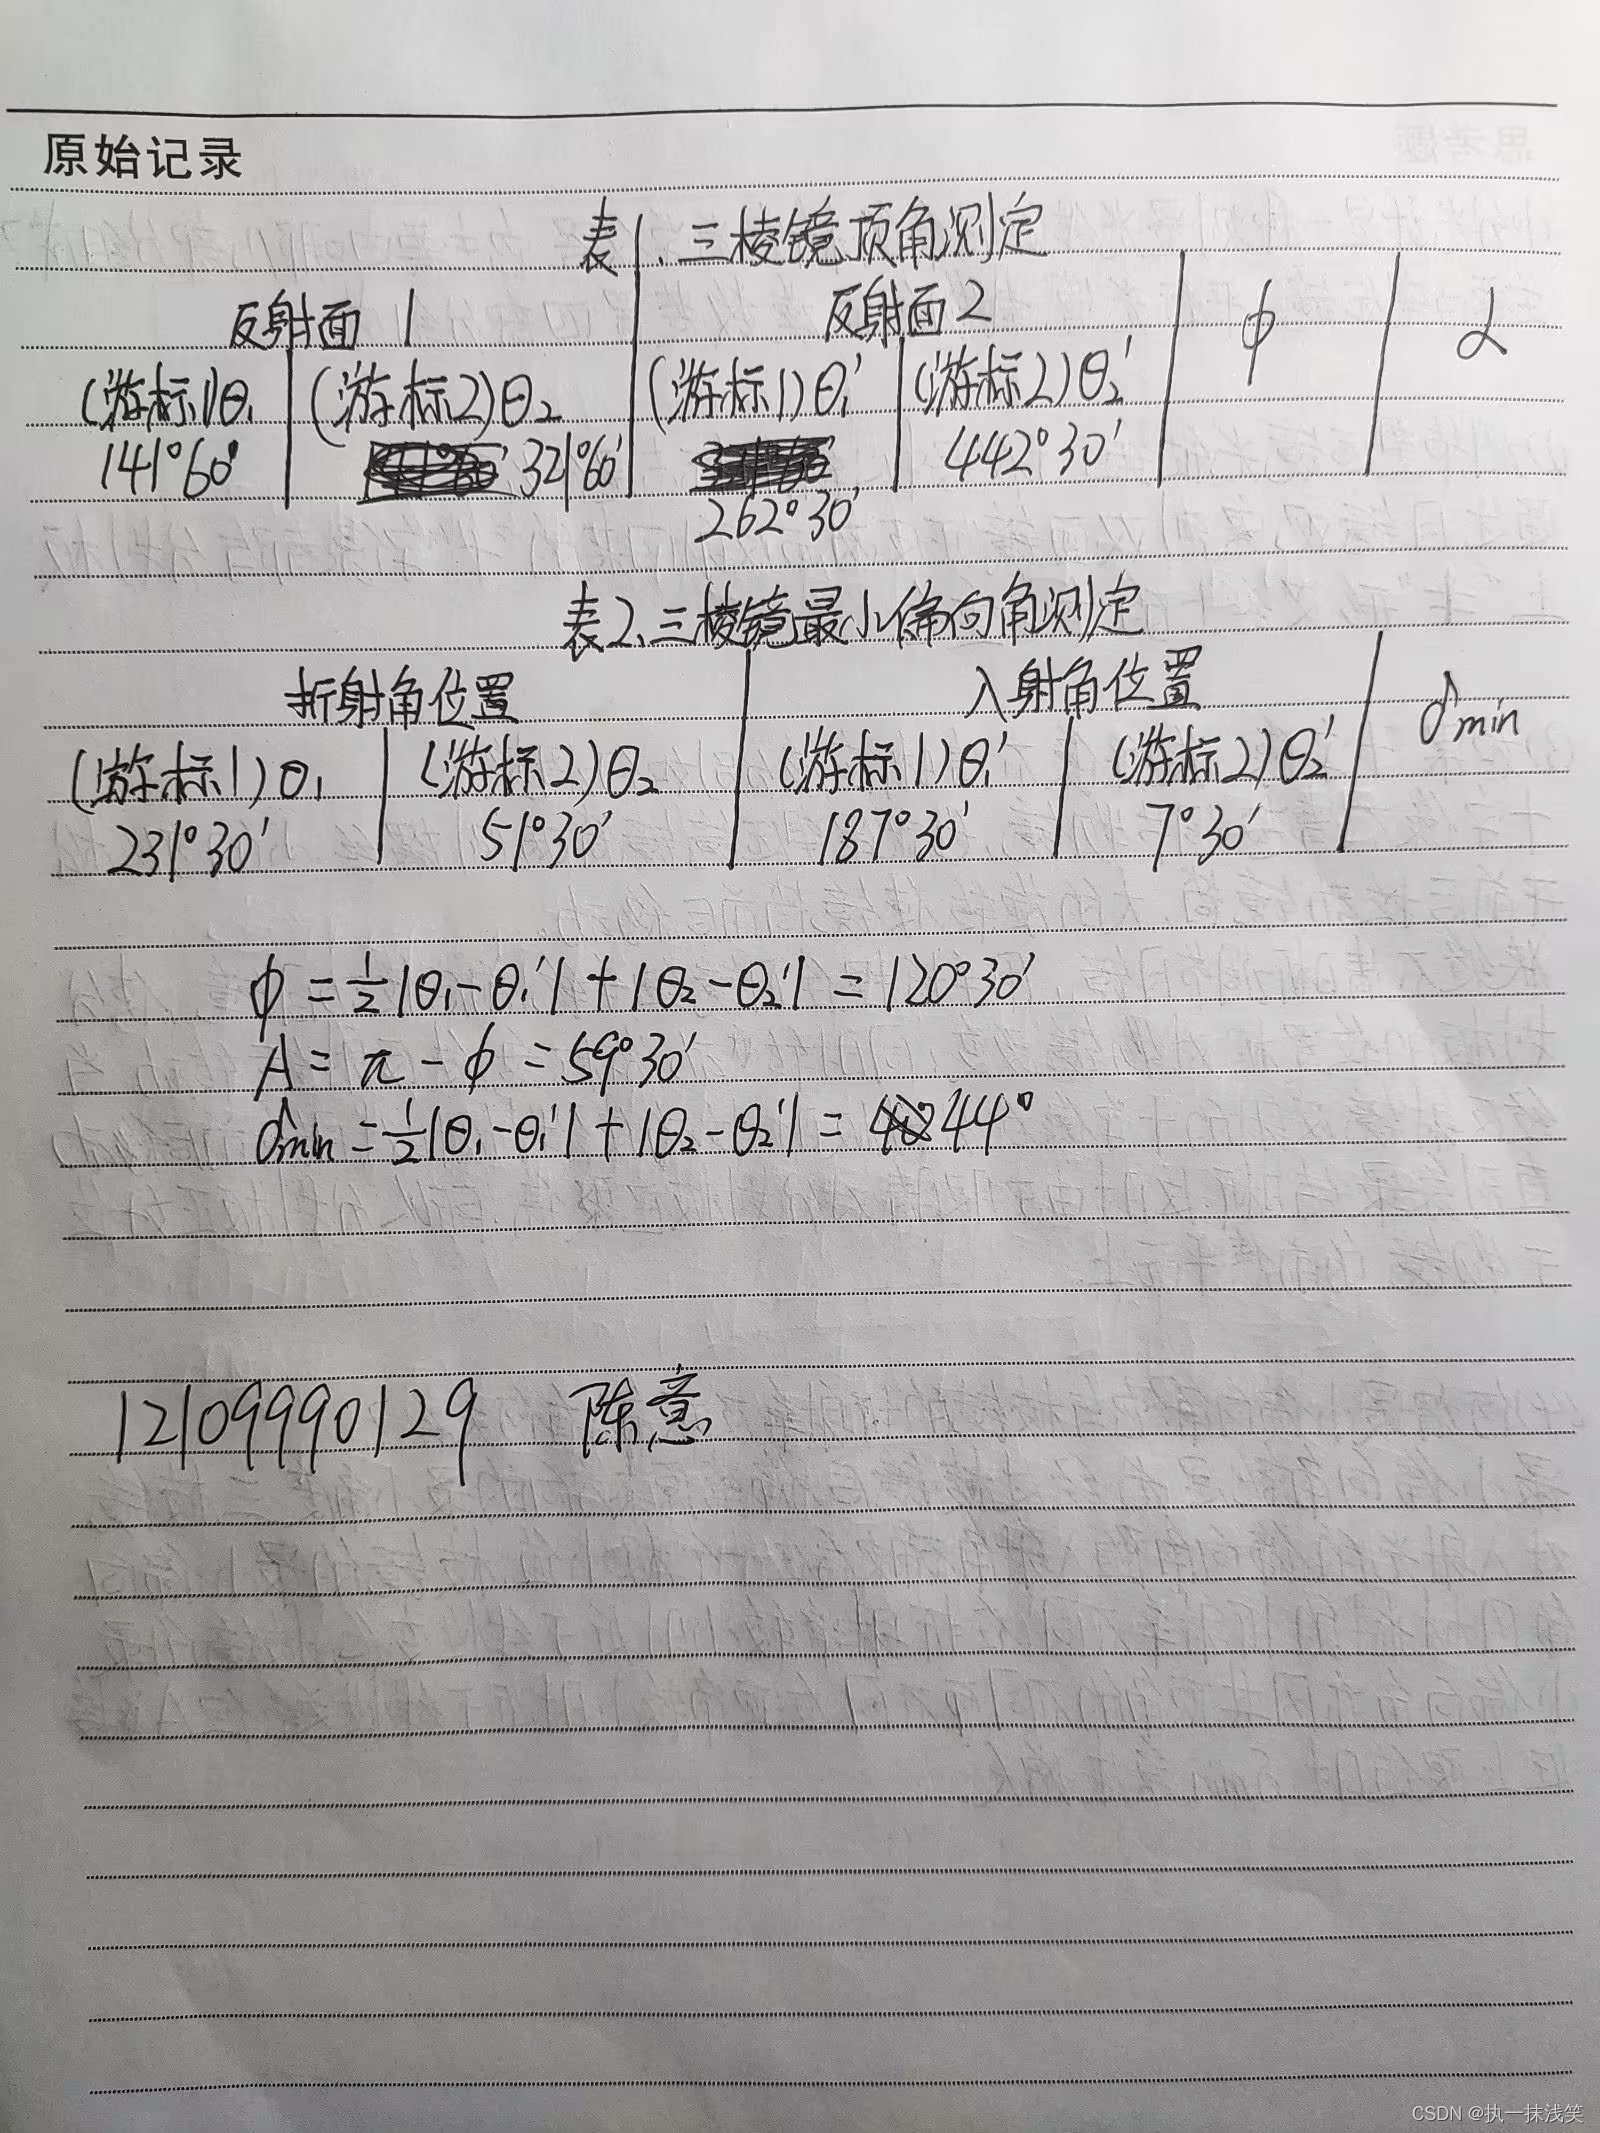 原始记录
表1、三棱镜顶角测定
反射面1 反射面2 φ α
(游标1)θ₁ (游标2)θ₂ (游标1)θ₁′ (游标2)θ₂′
141°60′ 321°60′ 442°30′
262°30′
表2、三棱镜最小偏向角测定
折射角位置 入射角位置 δmin
(游标1)θ₁ (游标2)θ₂ (游标1)θ₁′ (游标2)θ₂′
231°30′ 51°30′ 187°30′ 7°30′
φ = ½|θ₁-θ₁′|+|θ₂-θ₂′| = 120°30′
A = π - φ = 59°30′
δmin = ½|θ₁-θ₁′|+|θ₂-θ₂′| = 44°
12109990129 陈意
CSDN @执一抹浅笑